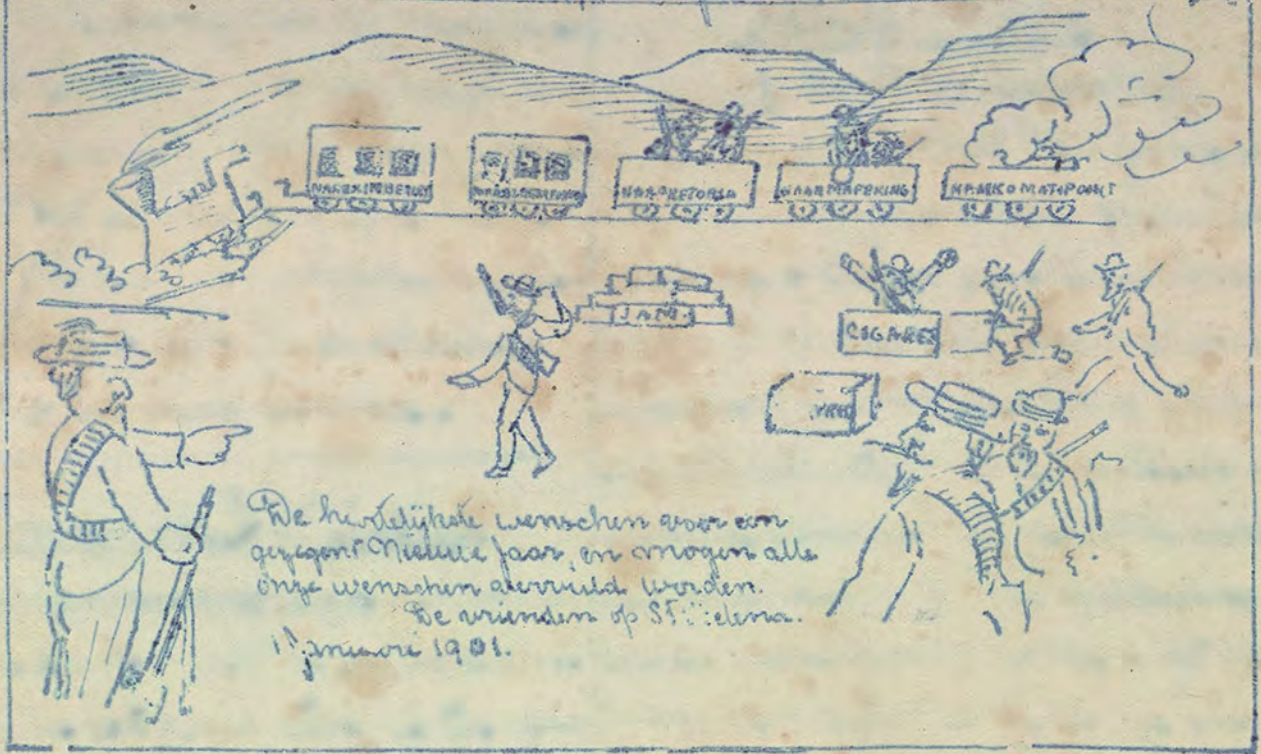 NAAR KIMBERLEY
NAAR PRETORIA
NAAR MAFEKING
NAAR KOMATIPOORT
JAM
CIGARES
De hartelijkste wenschen voor een
gezegent Nieuwe Jaar, en mogen alle
onze wenschen vervuld worden.
De vrienden op St. Helena.
1 Januari 1901.